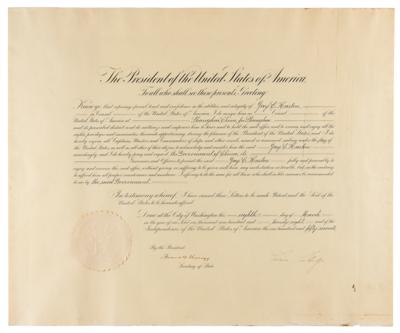 The President of the United States of America
To all who shall see these presents, Greeting:
Know ye, that reposing special trust and confidence in the abilities and integrity of Jay C. Huston,
a Consul of the United States of America, I do assign him as Consul of the
United States of America at Shanghai, China,
and to exercise and enjoy all the
rights,
during the pleasure of the President of the United States. And I do
hereby enjoin all Captains, Masters and Commanders of ships and other vessels, armed or unarmed, sailing under the flag of
the United States, as well as all other of their citizens, to acknowledge and consider him the said Jay C. Huston
accordingly. And I do hereby pray and request the Government of China, its
Governors and Officers to permit the said Jay C. Huston fully and peaceably to
enjoy and exercise the said office, without giving or suffering to be given unto him, any molestation or trouble, but on the contrary
to afford him all proper countenance and assistance; I offering to do the same for all those who shall in like manner be recommended
to me by the said Government.
In testimony whereof, I have caused these Letters to be made Patent and the Seal of the
United States to be hereunto affixed.
Done at the City of Washington this eighth day of March,
in the year of our Lord one thousand nine hundred and twenty-eight, and of the
Independence of the United States of America the one hundred and fifty-second.
By the President:
Secretary of State.